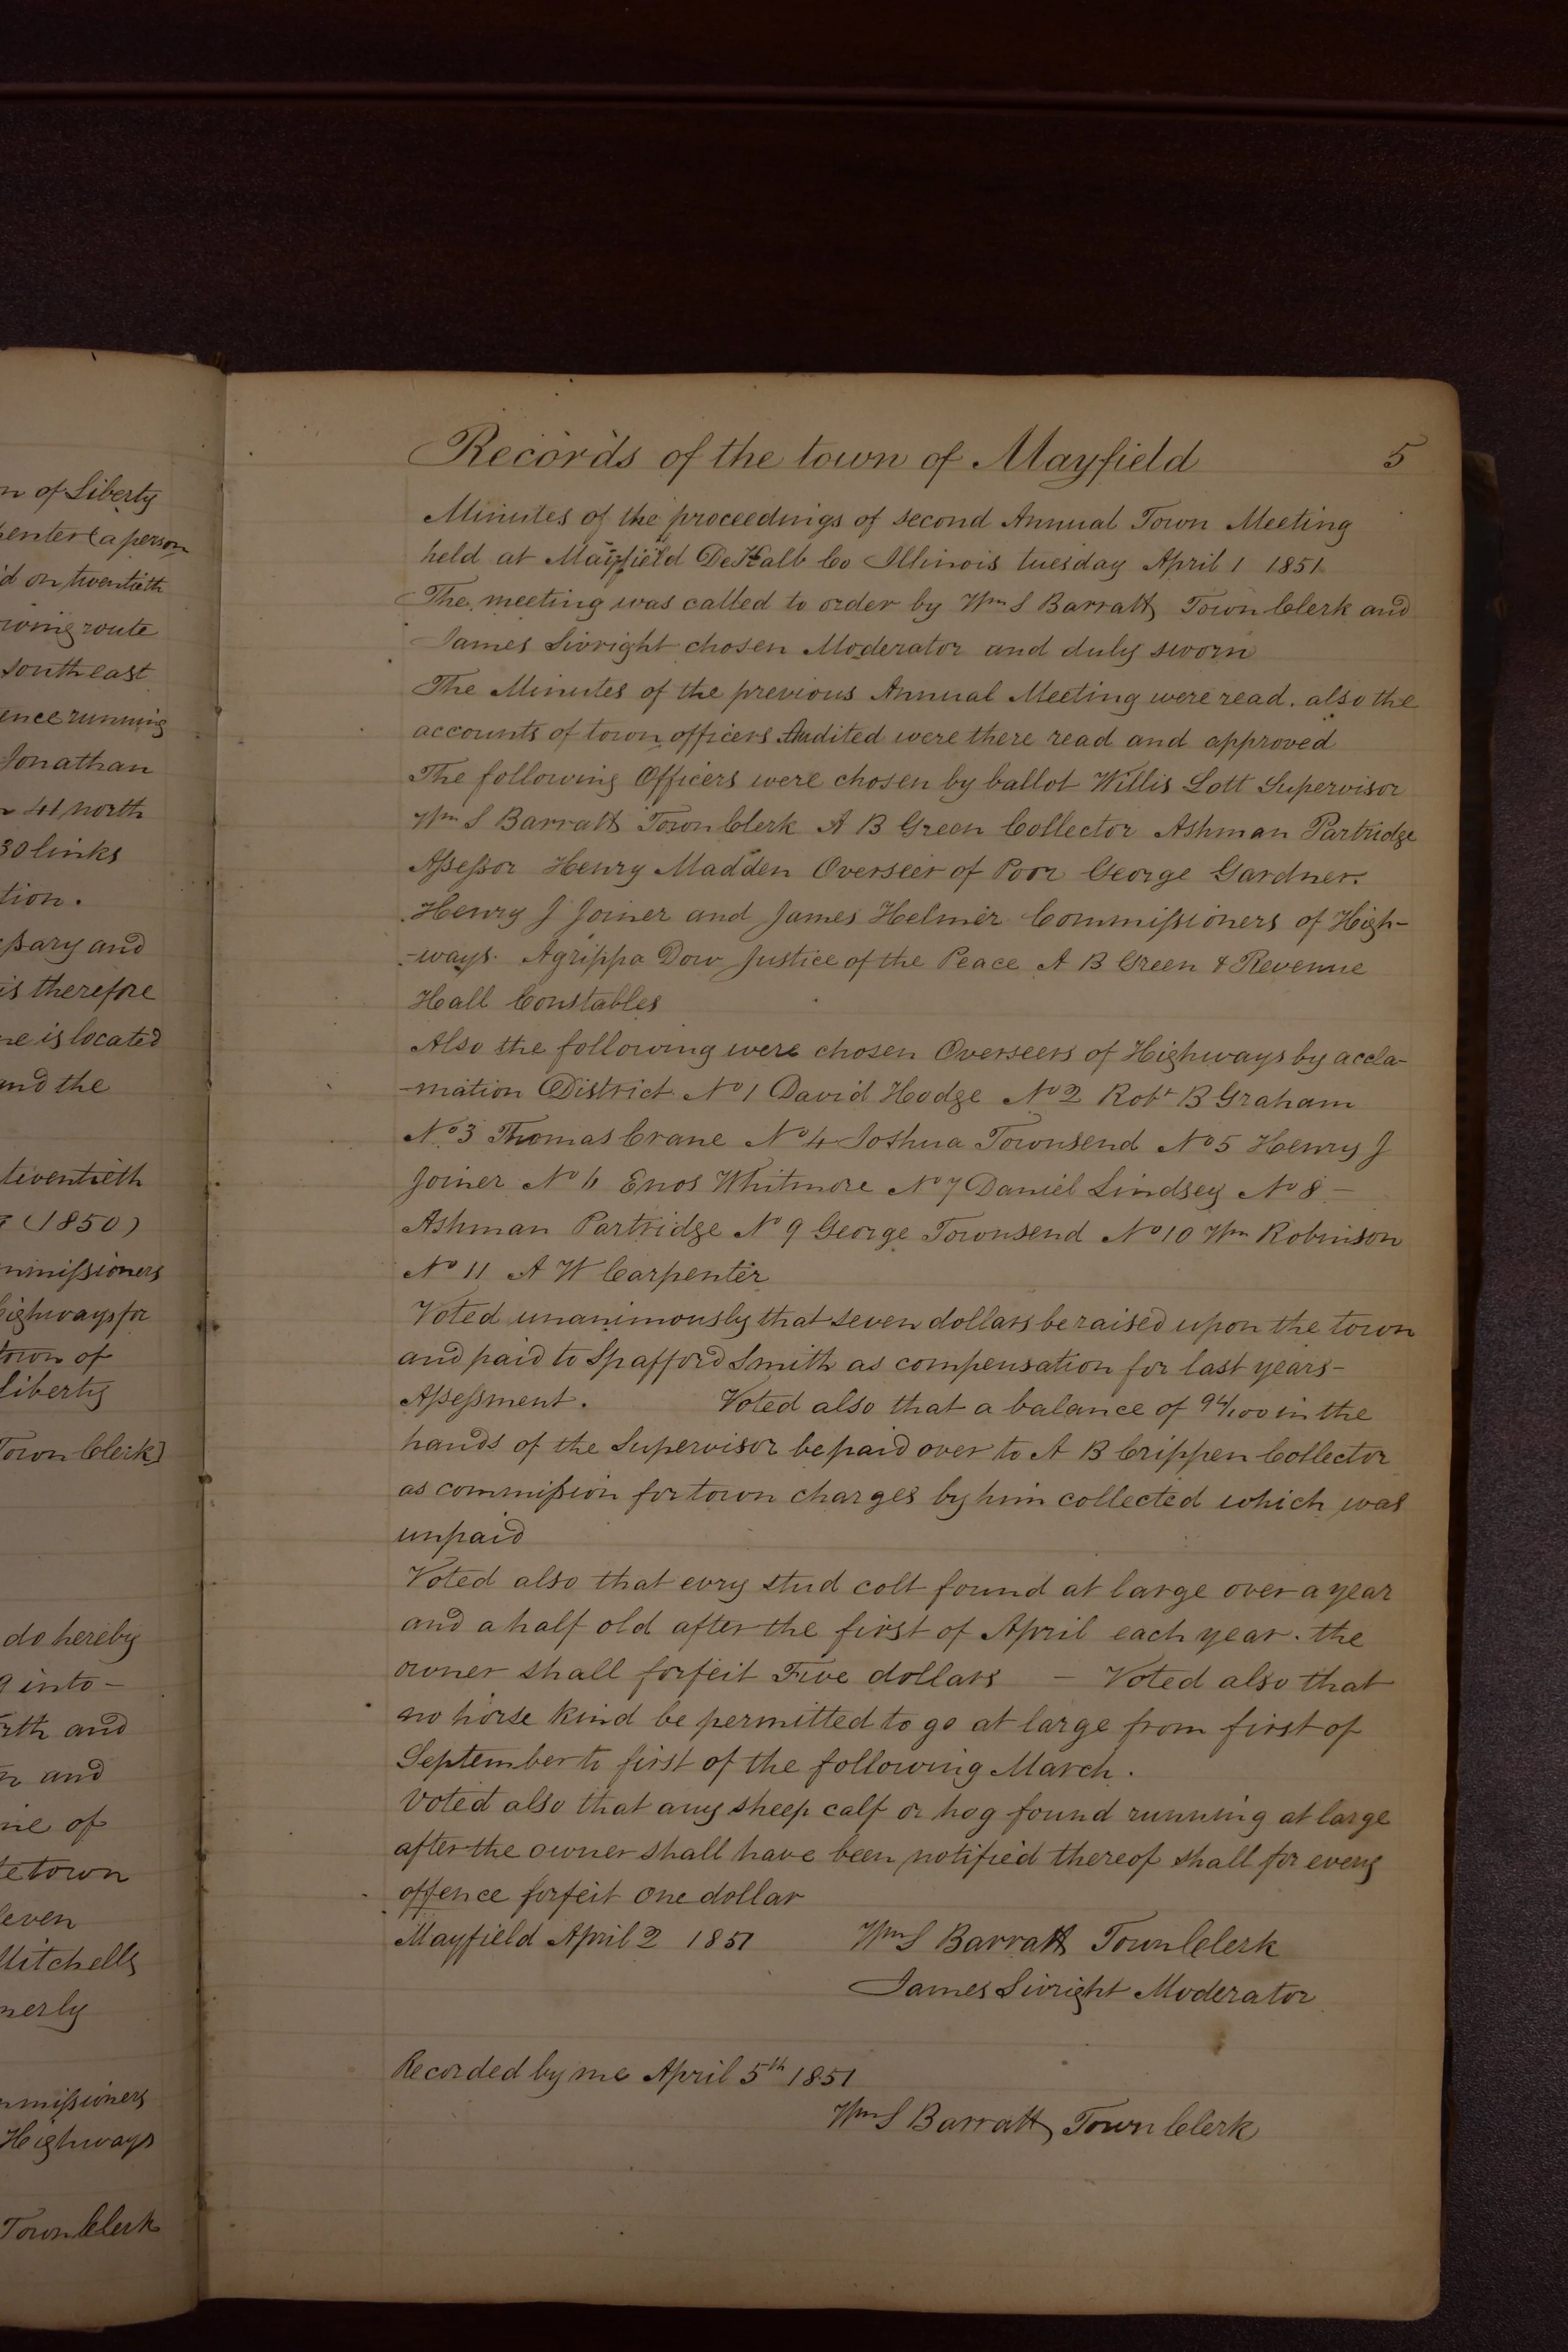 n of Liberty
penter (a person
d on twentieth
owing route
southeast
ence running
Jonathan
41 north
30 links
tion.
ssary and
is therefore
ne is located
and the
twentieth
(1850)
mmissioners
highways for
town of
Liberty
Town Clerk]
do hereby
g into -
rth and
n and
ne of
te town
leven
Mitchells
nerly
mmissioners
Highways
Town Clerk
Records of the town of Mayfield 5
Minutes of the proceedings of second Annual Town Meeting
held at Mayfield DeKalb Co Illinois tuesday April 1 1851
The meeting was called to order by Wm S Barratt Town Clerk and
James Sivright chosen Moderator and duly sworn
The Minutes of the previous Annual Meeting were read. also the
accounts of town officers Audited were there read and approved
The following Officers were chosen by ballot Willis Lott Supervisor
Wm S Barratt Town Clerk A B Green Collector Ashman Partridge
Assessor Henry Madden Overseer of Poor George Gardner.
Henry J Joiner and James Helmer Commissioners of High-
-ways. Agrippa Dow Justice of the Peace A B Green & Revenue
Hall Constables
Also the following were chosen Overseers of Highways by accla-
-mation District No 1 David Hodge No 2 Robt B Graham
No 3 Thomas Crane No 4 Joshua Townsend No 5 Henry J
Joiner No 6 Enos Whitmore No 7 Daniel Lindsey No 8 -
Ashman Partridge No 9 George Townsend No 10 Wm Robinson
No 11 A W Carpenter
Voted unanimously that seven dollars be raised upon the town
and paid to Spafford Smith as compensation for last years-
Assessment. Voted also that a balance of 94/100 in the
hands of the Supervisor be paid over to A B Crippen Collector
as commission for town charges by him collected which was
unpaid
Voted also that evry stud colt found at large over a year
and a half old after the first of April each year. the
owner shall forfeit Five dollars - Voted also that
no horse kind be permitted to go at large from first of
September to first of the following March.
Voted also that any sheep calf or hog found running at large
after the owner shall have been notified thereof shall for every
offence forfeit one dollar
Mayfield April 2 1851 Wm S Barratt Town Clerk
James Sivright Moderator
Recorded by me April 5th 1851
Wm S Barratt Town Clerk